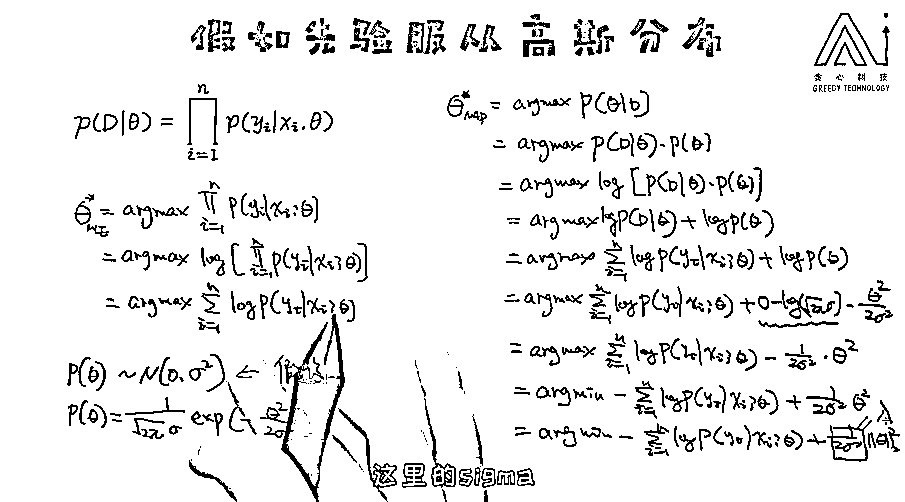 假如先验服从高斯分布
贪心科技
GREEDY TECHNOLOGY
p(D|θ) = ∏_{i=1}^{n} p(y_i|x_i.θ)
θ*_{MLE} = argmax ∏_{i=1}^{n} P(y_i|x_i;θ)
= argmax log[∏_{i=1}^{n} P(y_i|x_i;θ)]
= argmax ∑_{i=1}^{n} log P(y_i|x_i;θ)
P(θ) ~ N(0,σ²) ←
P(θ) = 1/(√2π σ) exp(- θ²/2σ
θ*_{MAP} = argmax P(θ|D)
= argmax P(D|θ)·P(θ)
= argmax log [P(D|θ)·P(θ)]
= argmax log P(D|θ) + log P(θ)
= argmax ∑_{i=1}^{n} log P(y_i|x_i;θ) + log P(θ)
= argmax ∑_{i=1}^{n} log P(y_i|x_i;θ) + 0-log(√2πσ) - θ²/2σ²
= argmax ∑_{i=1}^{n} log P(y_i|x_i;θ) - 1/2σ² · θ²
= argmin - ∑_{i=1}^{n} log P(y_i|x_i;θ) + 1/2σ² θ²
= argmin - ∑_{i=1}^{n} log P(y_i|x_i;θ) + 1/2σ² ||θ||²₂
λ
这里的sigma